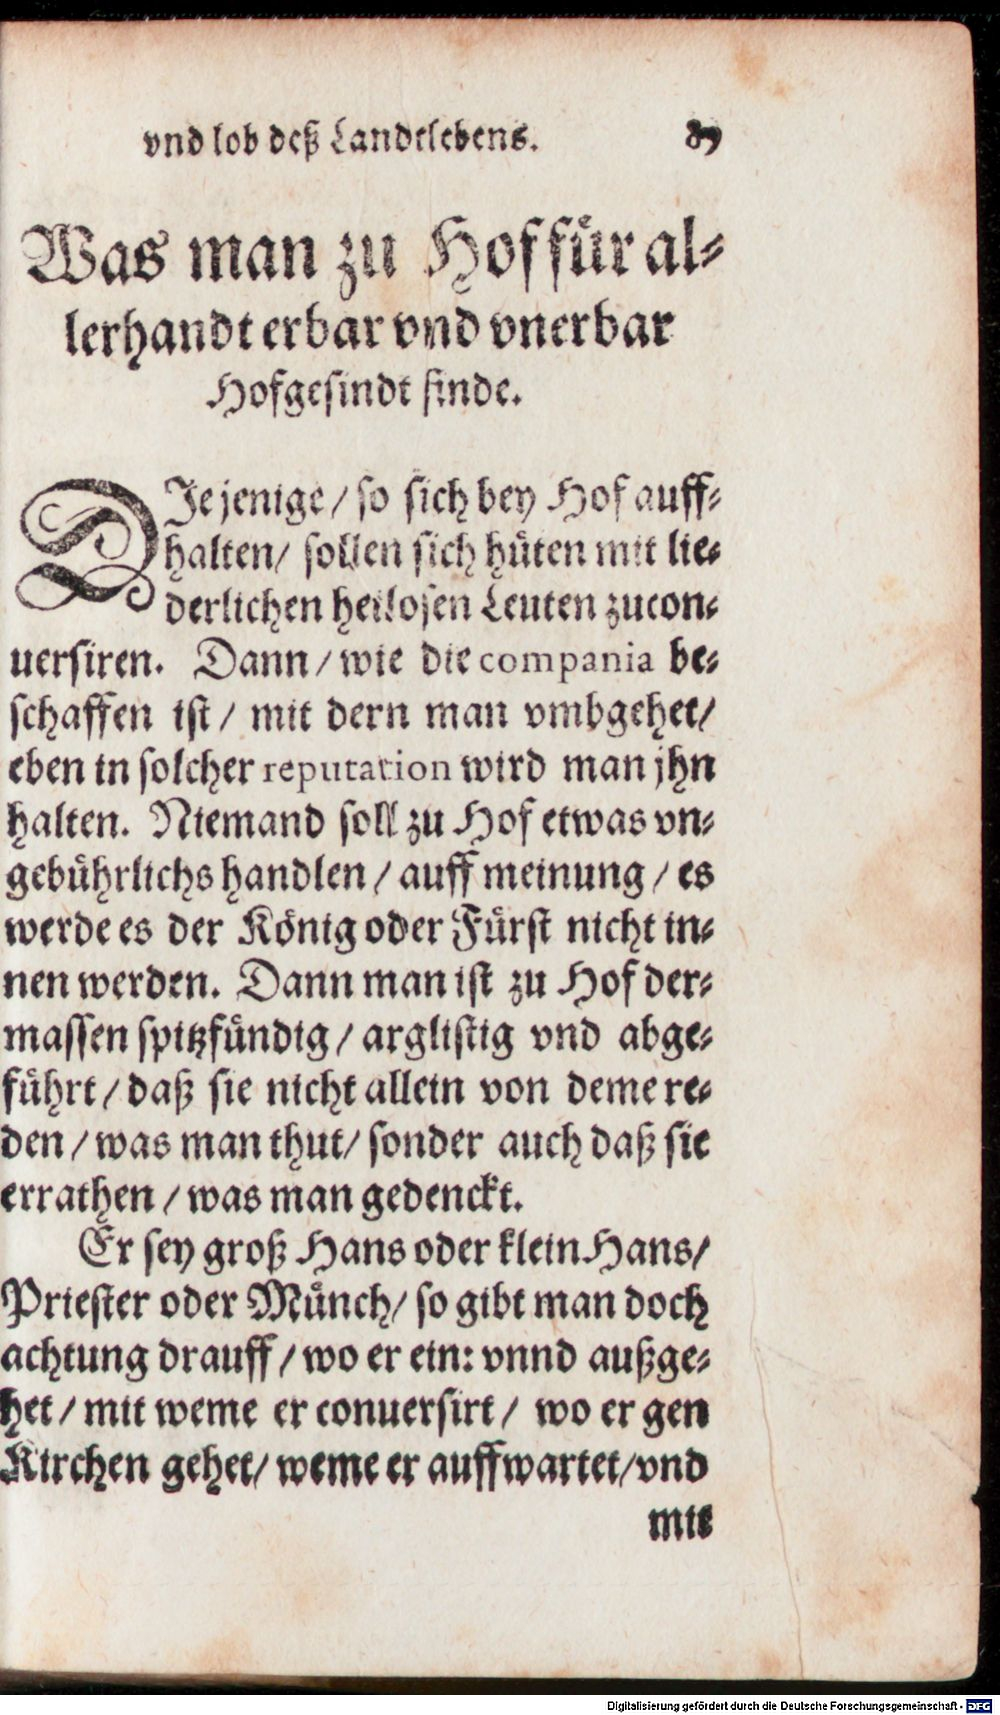 vnd lob deß Landtlebens. 87
Was man zu Hof für al-
lerhandt erbar vnd vnerbar
Hofgesindt finde.
DJe jenige / so sich bey Hof auff-
halten / sollen sich hüten mit lie-
derlichen heilosen Leuten zucon-
uersiren. Dann / wie die compania be-
schaffen ist / mit dern man vmbgehet /
eben in solcher reputation wird man jhn
halten. Niemand soll zu Hof etwas vn-
gebührlichs handlen / auff meinung / es
werde es der König oder Fürst nicht in-
nen werden. Dann man ist zu Hof der-
massen spitzfündig / arglistig vnd abge-
führt / daß sie nicht allein von deme re-
den / was man thut / sonder auch daß sie
errathen / was man gedenckt.
Er sey groß Hans oder klein Hans /
Priester oder Münch / so gibt man doch
achtung drauff / wo er ein: vnnd außge-
het / mit weme er conuersirt / wo er gen
Kirchen gehet / weme er auffwartet / vnd
mit
Digitalisierung gefördert durch die Deutsche Forschungsgemeinschaft - DFG